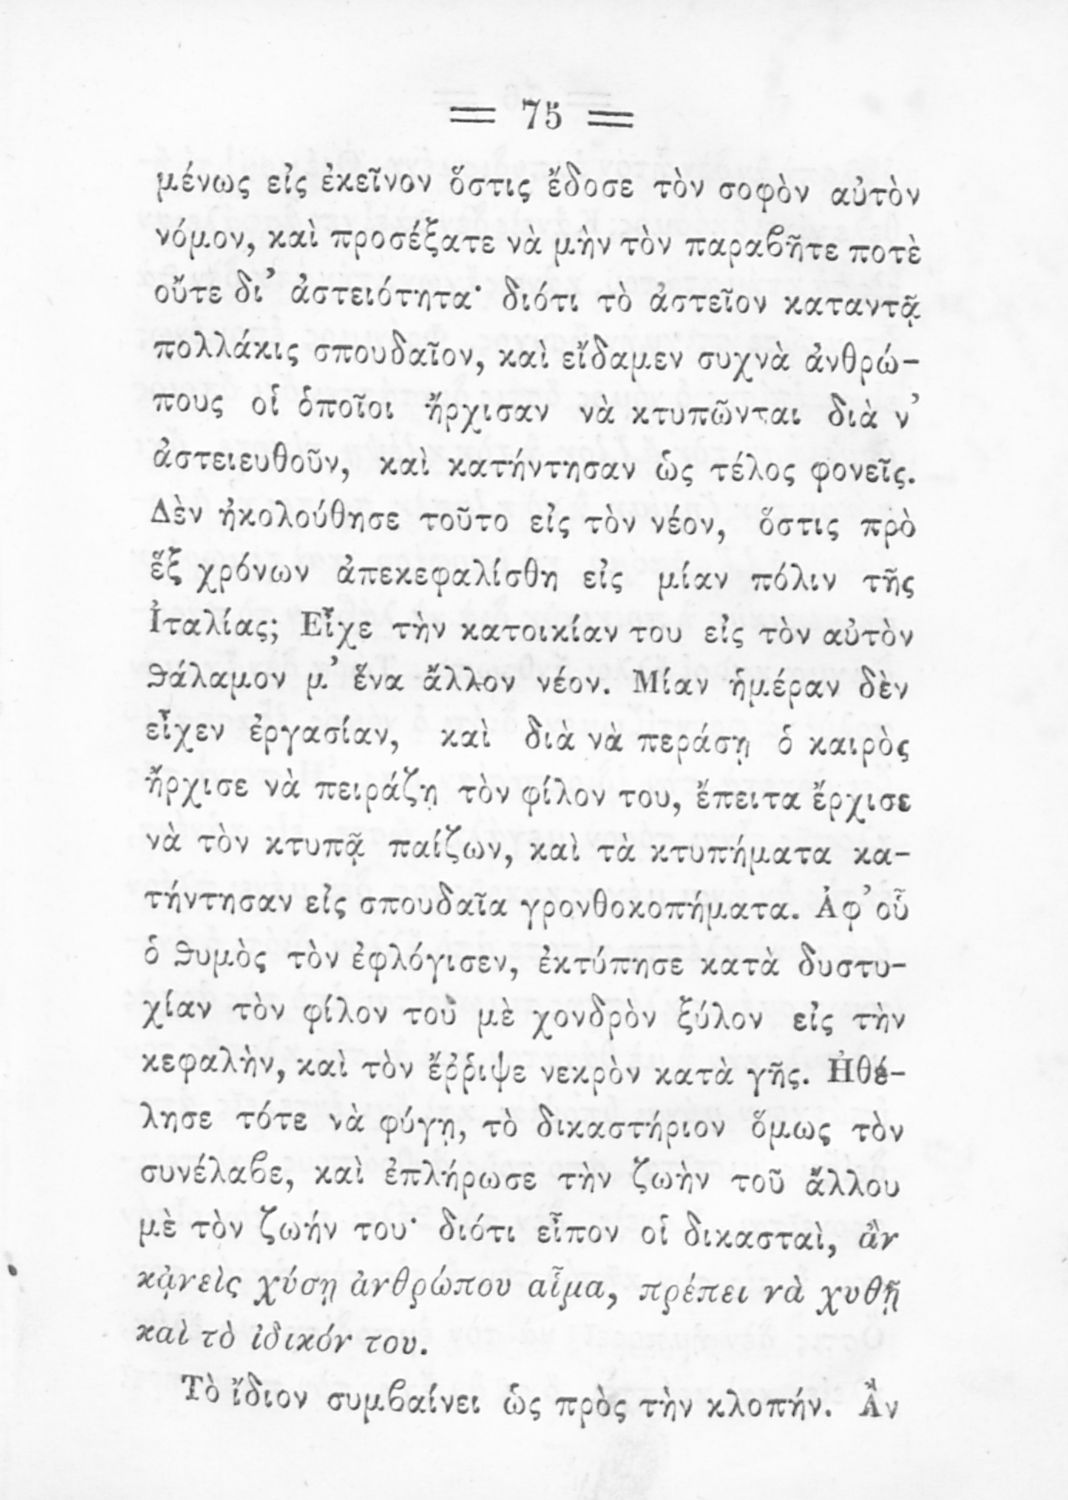 = 75 =
μένως εἰς ἐκεῖνον ὅστις ἔδοσε τὸν σοφὸν αὐτὸν
νόμον, καὶ προσέξατε νὰ μὴν τὸν παραβῆτε ποτὲ
οὔτε δι᾽ ἀστειότητα· διότι τὸ ἀστεῖον καταντᾷ
πολλάκις σπουδαῖον, καὶ εἴδαμεν συχνὰ ἀνθρώ-
πους οἱ ὁποῖοι ἤρχισαν νὰ κτυπῶνται διὰ ν᾽
ἀστειευθοῦν, καὶ κατήντησαν ὡς τέλος φονεῖς.
Δὲν ἠκολούθησε τοῦτο εἰς τὸν νέον, ὅστις πρὸ
ἓξ χρόνων ἀπεκεφαλίσθη εἰς μίαν πόλιν τῆς
Ἰταλίας; Εἶχε τὴν κατοικίαν του εἰς τὸν αὐτὸν
θάλαμον μ᾽ ἕνα ἄλλον νέον. Μίαν ἡμέραν δὲν
εἶχεν ἐργασίαν, καὶ διὰ νὰ περάσῃ ὁ καιρὸς
ἤρχισε νὰ πειράζῃ τὸν φίλον του, ἔπειτα ἔρχισε
νὰ τὸν κτυπᾷ παίζων, καὶ τὰ κτυπήματα κα-
τήντησαν εἰς σπουδαῖα γρονθοκοπήματα. Ἀφ᾽ οὗ
ὁ θυμὸς τὸν ἐφλόγισεν, ἐκτύπησε κατὰ δυστυ-
χίαν τὸν φίλον τοῦ μὲ χονδρὸν ξύλον εἰς τὴν
κεφαλὴν, καὶ τὸν ἔῤῥιψε νεκρὸν κατὰ γῆς. Ἠθέ-
λησε τότε νὰ φύγῃ, τὸ δικαστήριον ὅμως τὸν
συνέλαβε, καὶ ἐπλήρωσε τὴν ζωὴν τοῦ ἄλλου
μὲ τὸν ζωήν του· διότι εἶπον οἱ δικασταὶ, ἂν
κᾀνεὶς χύσῃ ἀνθρώπου αἷμα, πρέπει νὰ χυθῇ
καὶ τὸ ἰδικόν του.
Τὸ ἴδιον συμβαίνει ὡς πρὸς τὴν κλοπήν. Ἂν